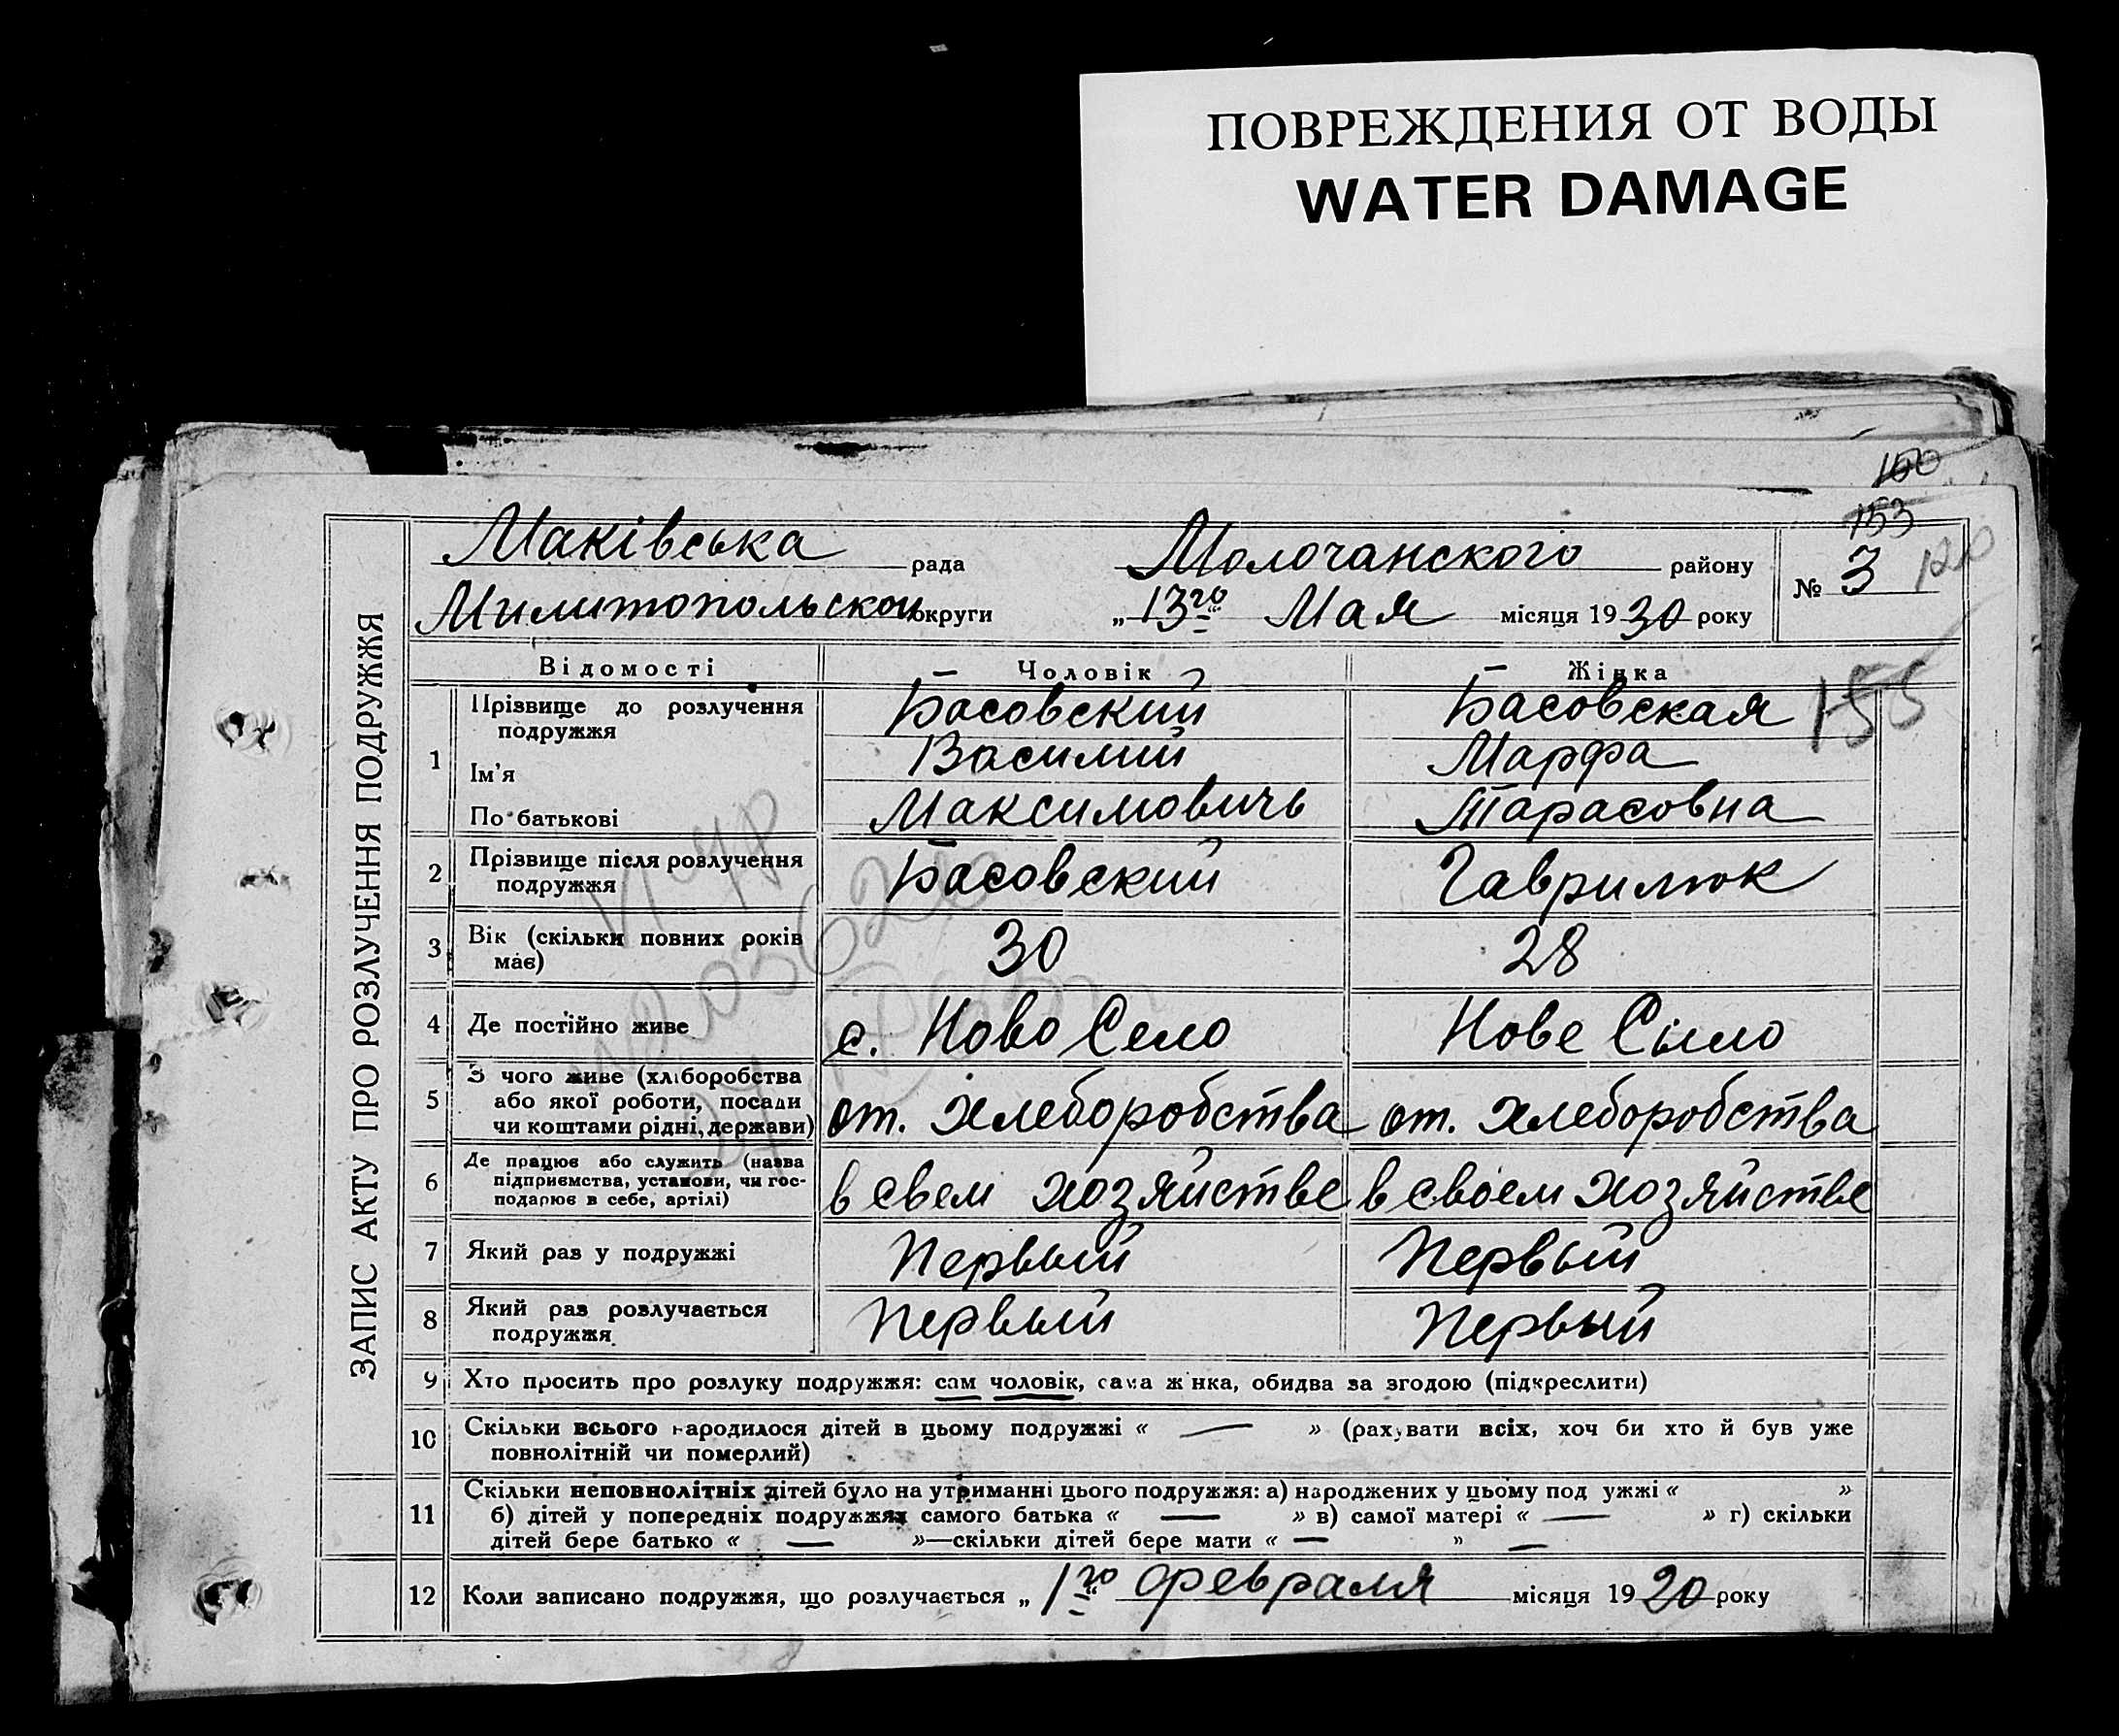 ПОВРЕЖДЕНИЯ ОТ ВОДЫ
WATER DAMAGE
150
153
Маківська рада Молочанского району № 3 120
Милитопольской округи „ 13го Мая місяця 1930 року
155
ЗАПИС АКТУ ПРО РОЗЛУЧЕННЯ ПОДРУЖЖЯ
Відомості Чоловік Жінка
1 Прізвище до розлучення Басовский Басовская
подружжя
Ім'я Василий Марфа
По батькові Максимовичь Тарасовна
2 Прізвище після розлучення Басовский Гаврилюк
подружжя
3 Вік (скільки повних років 30 28
має)
4 Де постійно живе с. Ново Село Нове Сило
5 З чого живе (хліборобства
або якої роботи, посади от. хлеборобства от. хлеборобства
чи коштами рідні, держави)
6 Де працює або служить (назва
підприємства, установи, чи гос- в свем хозяйстве в своем хозяйстве
подарює в себе, артілі)
7 Який раз у подружжі Первый Первый
8 Який раз розлучається Первый Первый
подружжя
9 Хто просить про розлуку подружжя: сам чоловік, сама жінка, обидва за згодою (підкреслити)
10 Скільки всього народилося дітей в цьому подружжі « — » (рахувати всіх, хоч би хто й був уже
повнолітній чи померлий)
11 Скільки неповнолітніх дітей було на утриманні цього подружжя: а) народжених у цьому подружжі « »
б) дітей у попередніх подружжях самого батька « — » в) самої матері « — » г) скільки
дітей бере батько « — »—скільки дітей бере мати « — » —
12 Коли записано подружжя, що розлучається „ 1го февраля місяця 1920 року